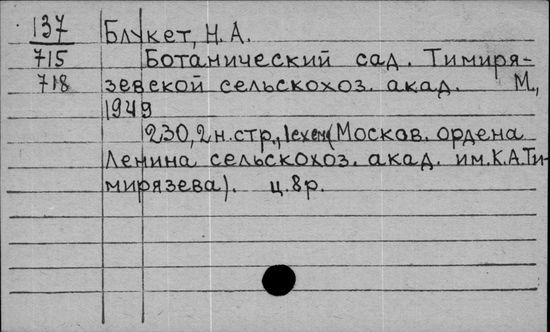 137 Блукет, Н. А.
715 Ботанический сад. Тимиря-
718 зевской сельскохоз. акад. М.,
1949
230, 2 н. стр., 1 схем (Москов. ордена
Ленина сельскохоз. акад. им. К. А. Ти-
мирязева). ц. 8 р.